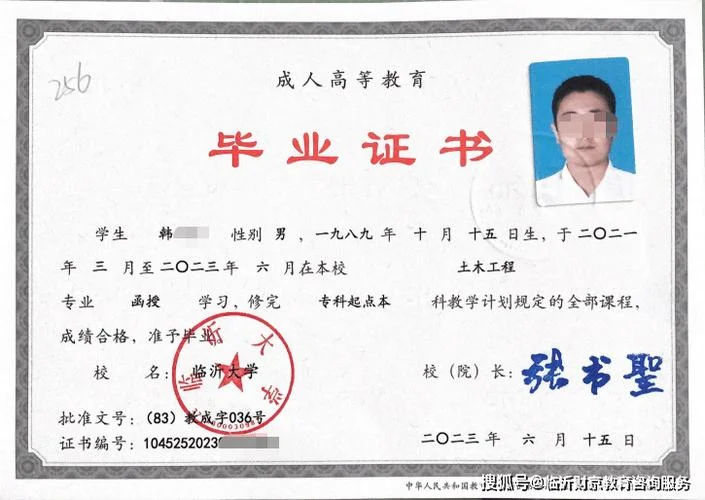 256
成人高等教育
毕业证书
学生 韩 性别 男 ,一九八九 年 十 月 十五 日生,于 二〇二一
年 三 月至 二〇二三 年 六 月在本校 土木工程
专业 函授 学习,修完 专科起点本 科教学计划规定的全部课程,
成绩合格,准予毕业
校 名: 临沂大学 校(院)长: 张书圣
临沂大学
批准文号: (83) 教成字036号
证书编号: 1045252023
二〇二三 年 六 月 十五 日
中华人民共和国教
搜狐号@临沂财京教育咨询服务